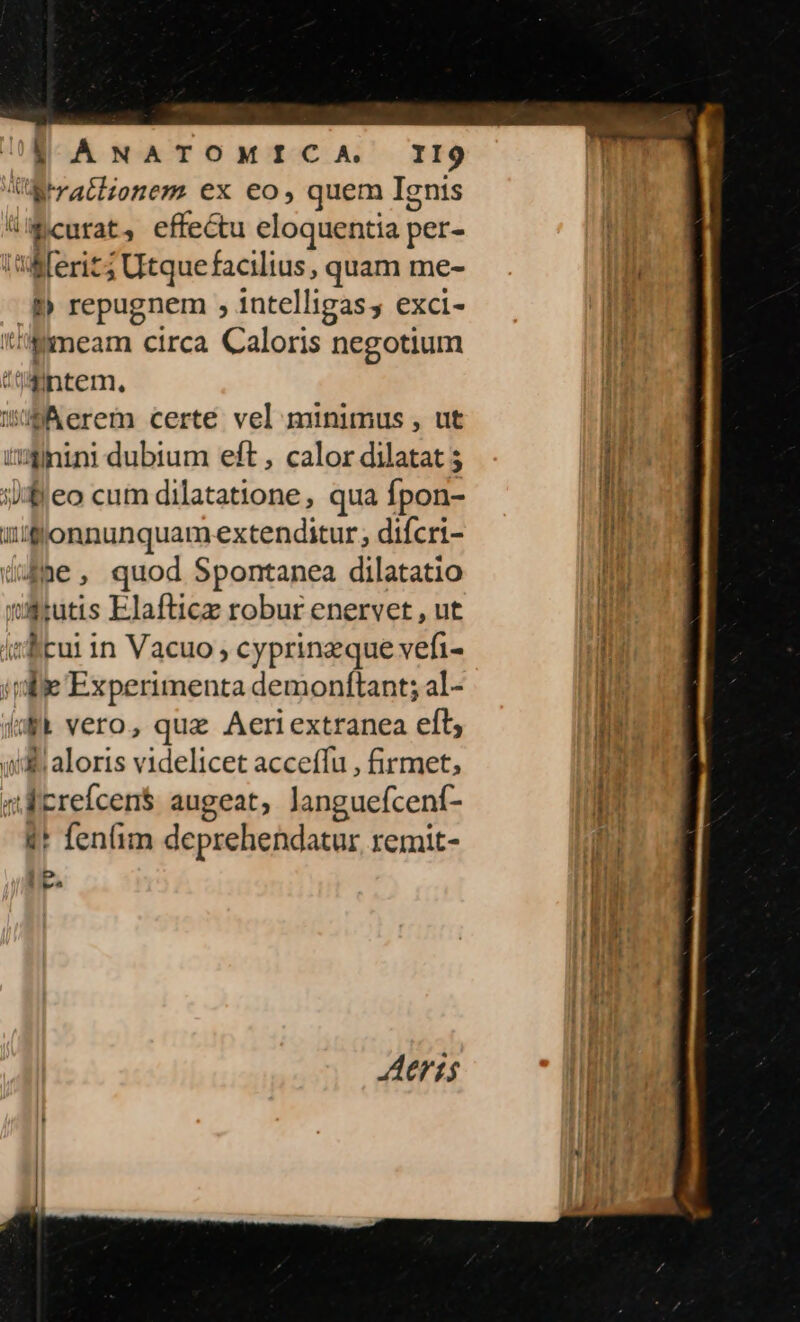 ANATOMICA. 119
ex eo, quem Ignis
effectu eloquentia per-
Utque facilius, quam me-
repugnem, intelligas, exci-
meam circa Caloris negotium
Aerem certe vel minimus, ut
dubium eſt, calor dilatat;
eo cum dilatatione, qua ſpon-
extenditur, diſcri-
quod Spontanea dilatatio
Elaſticæ robur enervet, ut
in Vacuo, cyprinæque veſi-
Experimenta demonſtant; al-
vero, quæ Aeri extranea eſt,
videlicet acceſſu, firmet,
augeat, langueſcenſ-
ſenſim deprehendatur remit-
Aeris